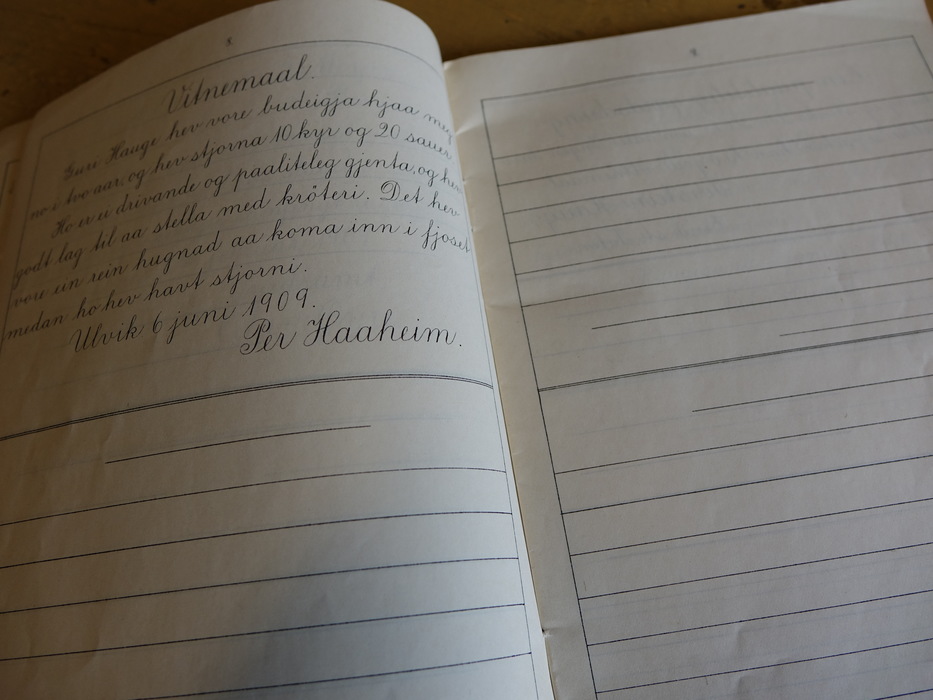 8.
Vitnemaal.
Guro Hauge hev vore budeigja hjaa meg
no i tvo aar, og hev stjorna 10 kyr og 20 sauer.
Ho er ei drivande og paaliteleg gjenta, og hev
godt lag til aa stella med kröteri. Det hev
vore ein rein hugnad aa koma inn i fjoset
medan ho hev havt stjorni.
Ulvik 6 juni 1909.
Per Haaheim.
9.